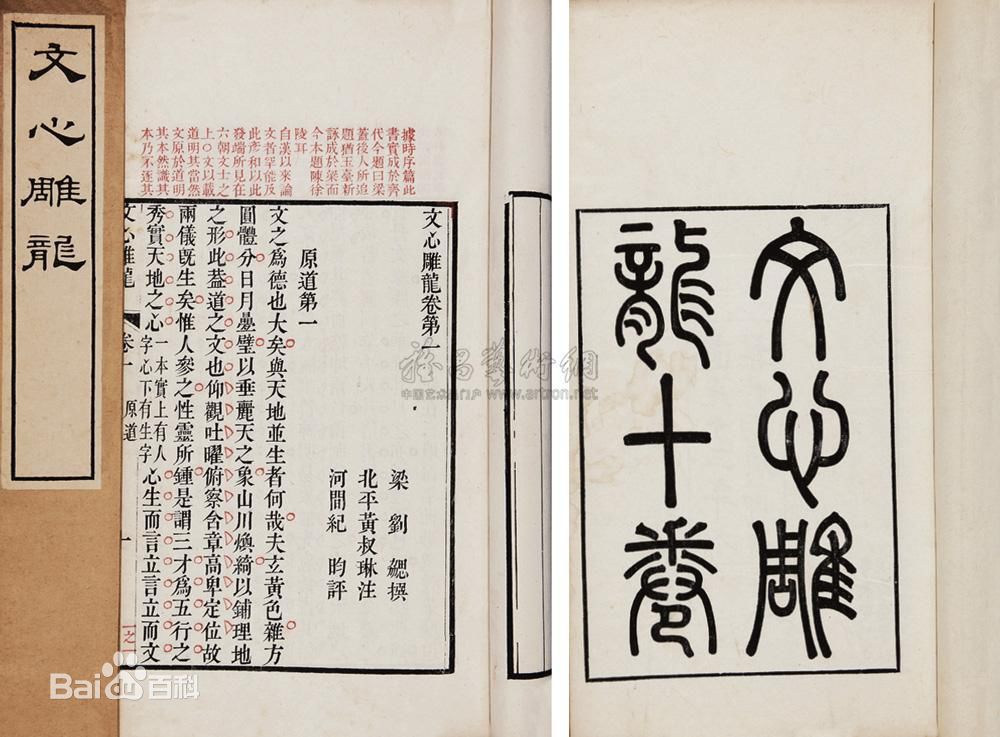 文心雕龍
據時序篇此
書實成於齊
代今題曰梁
蓋後人所追
題猶玉臺新
詠成於梁而
今本題陳徐
陵耳
自漢以來論
文者罕能及
此彥和以此
發端所見在
六朝文士之
上○文以載
道明其當然
文原於道明
其本然識其
本乃不逐其
文心雕龍卷第一
梁 劉 勰撰
北平黃叔琳注
河間紀 昀評
原道第一
文之爲德也大矣與天地並生者何哉夫玄黃色雜方
圓體分日月疊璧以垂麗天之象山川煥綺以鋪理地
之形此葢道之文也仰觀吐曜俯察含章高卑定位故
兩儀旣生矣惟人參之性靈所鍾是謂三才爲五行之
秀實天地之心一本實上有人字心下有生字心生而言立言立而文
文心雕龍 卷一 原道 一
文心雕
龍十卷
雅昌藝術網
中国艺术品门户 www.artron.net
Bai百科